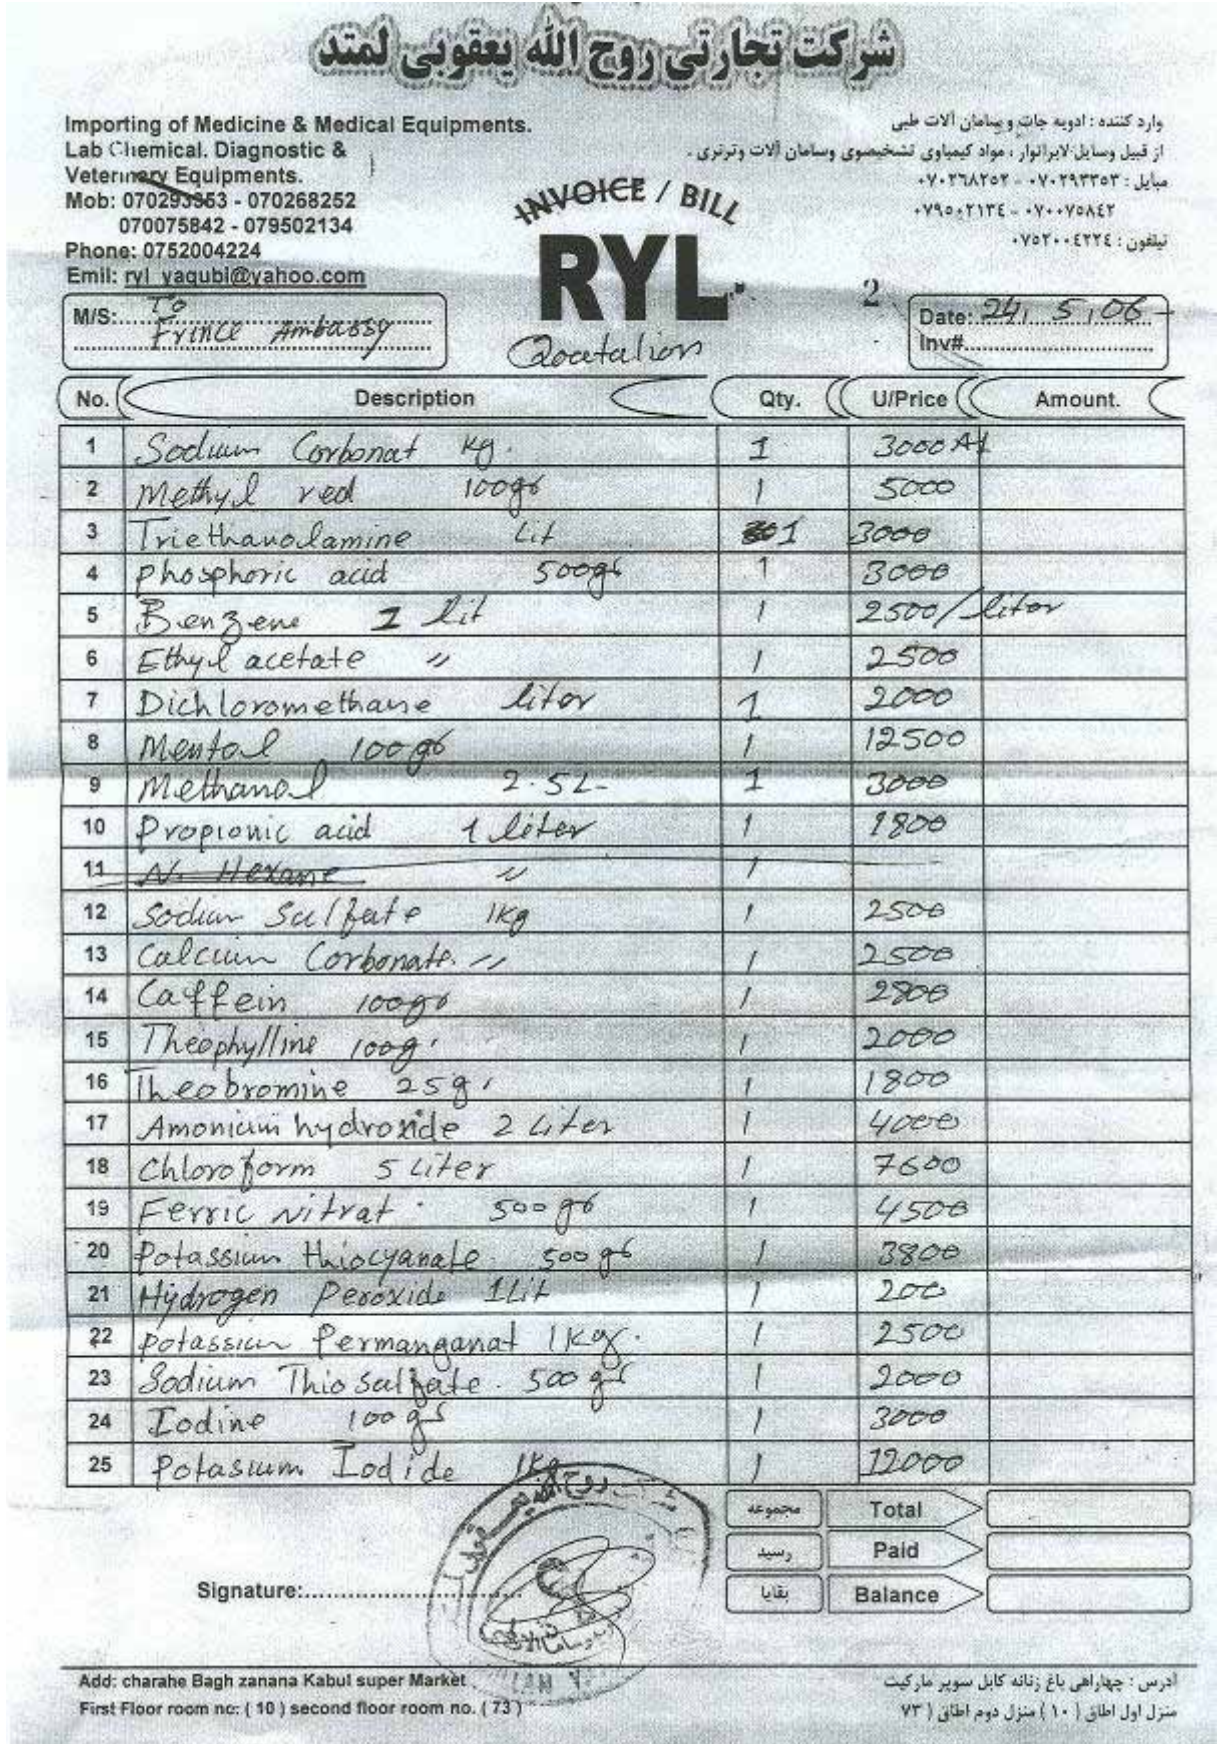 شرکت تجارتی روح الله یعقوبی لمتد
Importing of Medicine & Medical Equipments.
Lab Chemical. Diagnostic &
Veterinary Equipments.
Mob: 070293353 - 070268252
070075842 - 079502134
Phone: 0752004224
Emil: ryl_yaqubi@yahoo.com
وارد کننده : ادویه جات و سامان آلات طبی
از قبیل وسایل لابراتوار ، مواد کیمیاوی تشخیصوی وسامان آلات وترنری .
مبایل : ۰۷۰۲۹۳۳۵۳ - ۰۷۰۲۶۸۲۵۲
۰۷۰۰۷۵۸۴۲ - ۰۷۹۵۰۲۱۳٤
تیلفون : ۰۷۵۲۰۰٤۲۲٤
INVOICE / BILL
RYL
Qoatalion
2
M/S: To
Frince Ambassy
Date: 24, 5, 06
Inv#
No. Description Qty. U/Price Amount.
1 Sodium Corbonat kg. 1 3000 Af
2 Methyl red 100gr 1 5000
3 Triethanolamine Lit 1 3000
4 phosphoric acid 500gr 1 3000
5 Benzene 1 lit 1 2500/liter
6 Ethyl acetate " 1 2500
7 Dichloromethane liter 1 2000
8 Mentol 100gr 1 12500
9 Methanol 2.5L- 1 3000
10 Propionic acid 1 liter 1 1800
11 N. Hexane " 1
12 Sodium Sulfate 1Kg 1 2500
13 Calcium Corbonate. " 1 2500
14 Caffein 100gr 1 2800
15 Theophylline 100g. 1 2000
16 Theobromine 25g. 1 1800
17 Amonium hydroxide 2 Liter 1 4000
18 Chloroform 5 Liter 1 7600
19 Ferric Nitrat. 500gr 1 4500
20 Potassium thiocyanate. 500gr 1 3800
21 Hydrogen Peroxide 1Lit 1 200
22 potassium Permanganat 1Kg. 1 2500
23 Sodium Thiosulfate. 500gr 1 2000
24 Iodine 100gr 1 3000
25 Potasium Iodide 1Kg 1 12000
مجموعه Total
رسید Paid
بقایا Balance
Signature:
Add: charahe Bagh zanana Kabul super Market
First Floor room no: ( 10 ) second floor room no. ( 73 )
ادرس : چهاراهی باغ زنانه کابل سوپر مارکیت
منزل اول اطاق ( ۱۰ ) منزل دوم اطاق ( ۷۳